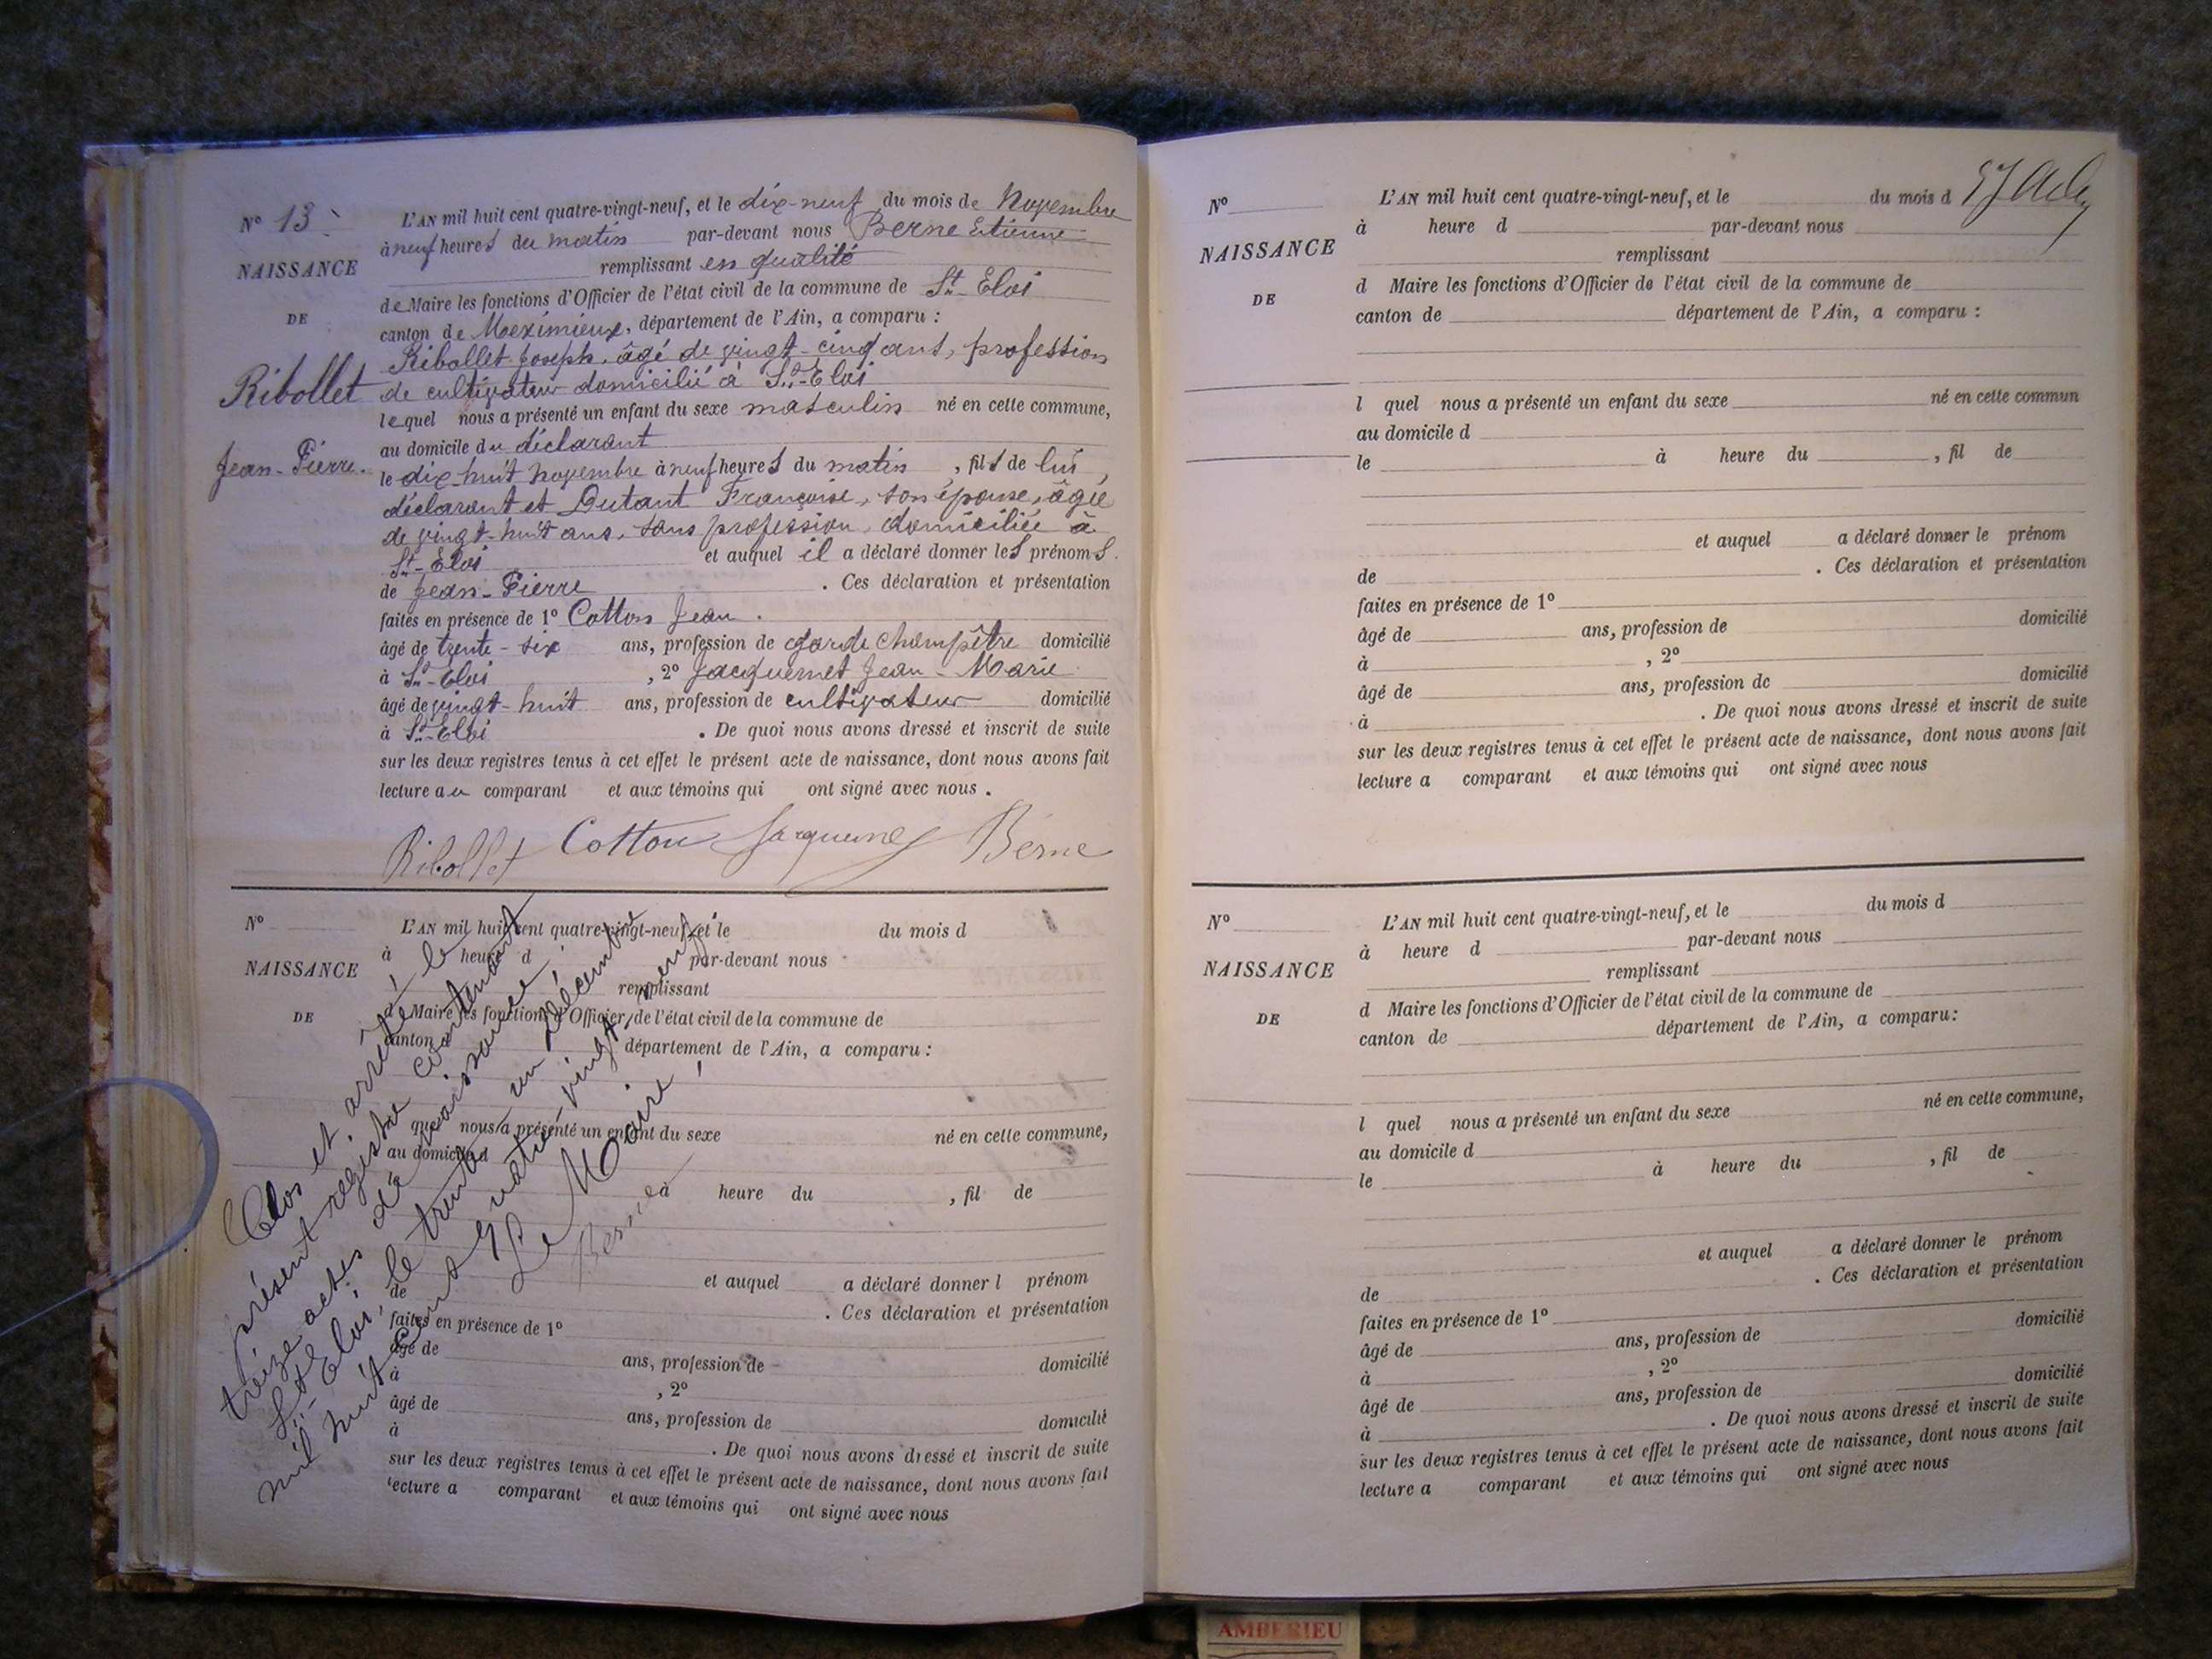 N° 13
NAISSANCE
DE
Ribollet
Jean-Pierre.
L'AN mil huit cent quatre-vingt-neuf, et le dix-neuf du mois de Novembre
à neuf heures du matin par-devant nous Berne Etienne
remplissant en qualité
de Maire les fonctions d'Officier de l'état civil de la commune de St-Eloi
canton de Meximieux, département de l'Ain, a comparu :
Ribollet Joseph, âgé de vingt-cinq ans, profession
de cultivateur domicilié à St-Eloi
lequel nous a présenté un enfant du sexe masculin né en cette commune,
au domicile du déclarant
le dix-huit novembre à neuf heures du matin , fils de lui,
déclarant et Dutant Françoise, son épouse, âgée
de vingt-huit ans, sans profession, domiciliée à
St-Eloi et auquel il a déclaré donner les prénoms
de Jean-Pierre . Ces déclaration et présentation
faites en présence de 1° Cotton Jean .
âgé de trente-six ans, profession de garde champêtre domicilié
à St-Eloi , 2° Jacquemet Jean-Marie
âgé de vingt-huit ans, profession de cultivateur domicilié
à St-Eloi . De quoi nous avons dressé et inscrit de suite
sur les deux registres tenus à cet effet le présent acte de naissance, dont nous avons fait
lecture au comparant et aux témoins qui ont signé avec nous .
Ribollet Cotton Jacquemet Berne
N°
NAISSANCE
DE
L'AN mil huit cent quatre-vingt-neuf, et le du mois d
à heure d par-devant nous
remplissant
d Maire les fonctions d'Officier de l'état civil de la commune de
canton d département de l'Ain, a comparu :
quel nous a présenté un enfant du sexe né en cette commune,
au domicile d
à heure du , fil de
et auquel a déclaré donner l prénom
de . Ces déclaration et présentation
faites en présence de 1°
âgé de ans, profession de domicilié
à , 2°
âgé de ans, profession de domicilié
à . De quoi nous avons dressé et inscrit de suite
sur les deux registres tenus à cet effet le présent acte de naissance, dont nous avons fait
lecture a comparant et aux témoins qui ont signé avec nous
Clos et arrêté le
présent registre contenant
treize actes de naissance.
St-Eloi, le trente un Décembre
mil huit cent quatre vingt neuf.
Le Maire,
Berne
N°
NAISSANCE
DE
L'AN mil huit cent quatre-vingt-neuf, et le du mois d
à heure d par-devant nous
remplissant
d Maire les fonctions d'Officier de l'état civil de la commune de
canton de département de l'Ain, a comparu :
l quel nous a présenté un enfant du sexe né en cette commun
au domicile d
le à heure du , fil de
et auquel a déclaré donner le prénom
de . Ces déclaration et présentation
faites en présence de 1°
âgé de ans, profession de domicilié
à , 2°
âgé de ans, profession de domicilié
à . De quoi nous avons dressé et inscrit de suite
sur les deux registres tenus à cet effet le présent acte de naissance, dont nous avons fait
lecture a comparant et aux témoins qui ont signé avec nous
N°
NAISSANCE
DE
L'AN mil huit cent quatre-vingt-neuf, et le du mois d
à heure d par-devant nous
remplissant
d Maire les fonctions d'Officier de l'état civil de la commune de
canton de département de l'Ain, a comparu:
l quel nous a présenté un enfant du sexe né en cette commune,
au domicile d
le à heure du , fil de
et auquel a déclaré donner le prénom
de . Ces déclaration et présentation
faites en présence de 1°
âgé de ans, profession de domicilié
à , 2°
âgé de ans, profession de domicilié
à . De quoi nous avons dressé et inscrit de suite
sur les deux registres tenus à cet effet le présent acte de naissance, dont nous avons fait
lecture a comparant et aux témoins qui ont signé avec nous
AMBERIEU